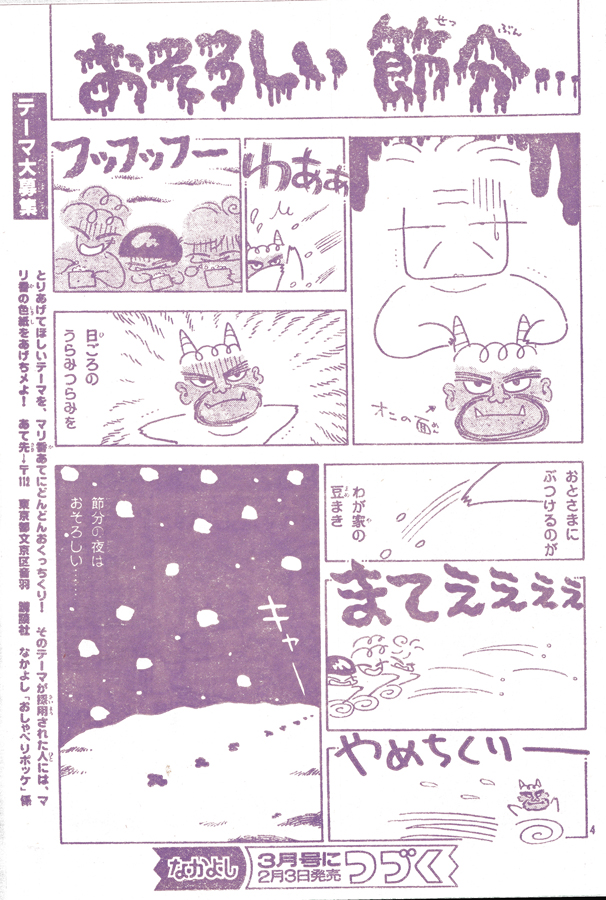 おそろしい 節分…
せつ ぶん
わあぁ
フッフッフー
オニの面
めん
日ごろの
ひ
うらみつらみを
おとさまに
ぶつけるのが
わが家の
や
豆まき
まめ
まてえぇぇぇ
やめちくりー
節分の夜は
おそろしい……
キャー
テーマ大募集
とりあげてほしいテーマを、マリ香あてにどんどんおくっちくり! そのテーマが採用された人には、マ
リ香の色紙をあげちメよ! あて先→〒112 東京都文京区音羽 講談社 なかよし「おしゃべりポッケ」係
なかよし 3月号に つづく
2月3日発売
4